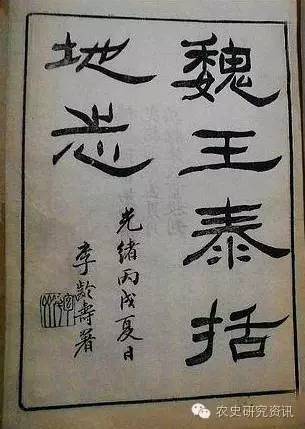 魏王泰括
地志
光绪丙戌夏日
李龄寿署
农史研究资讯